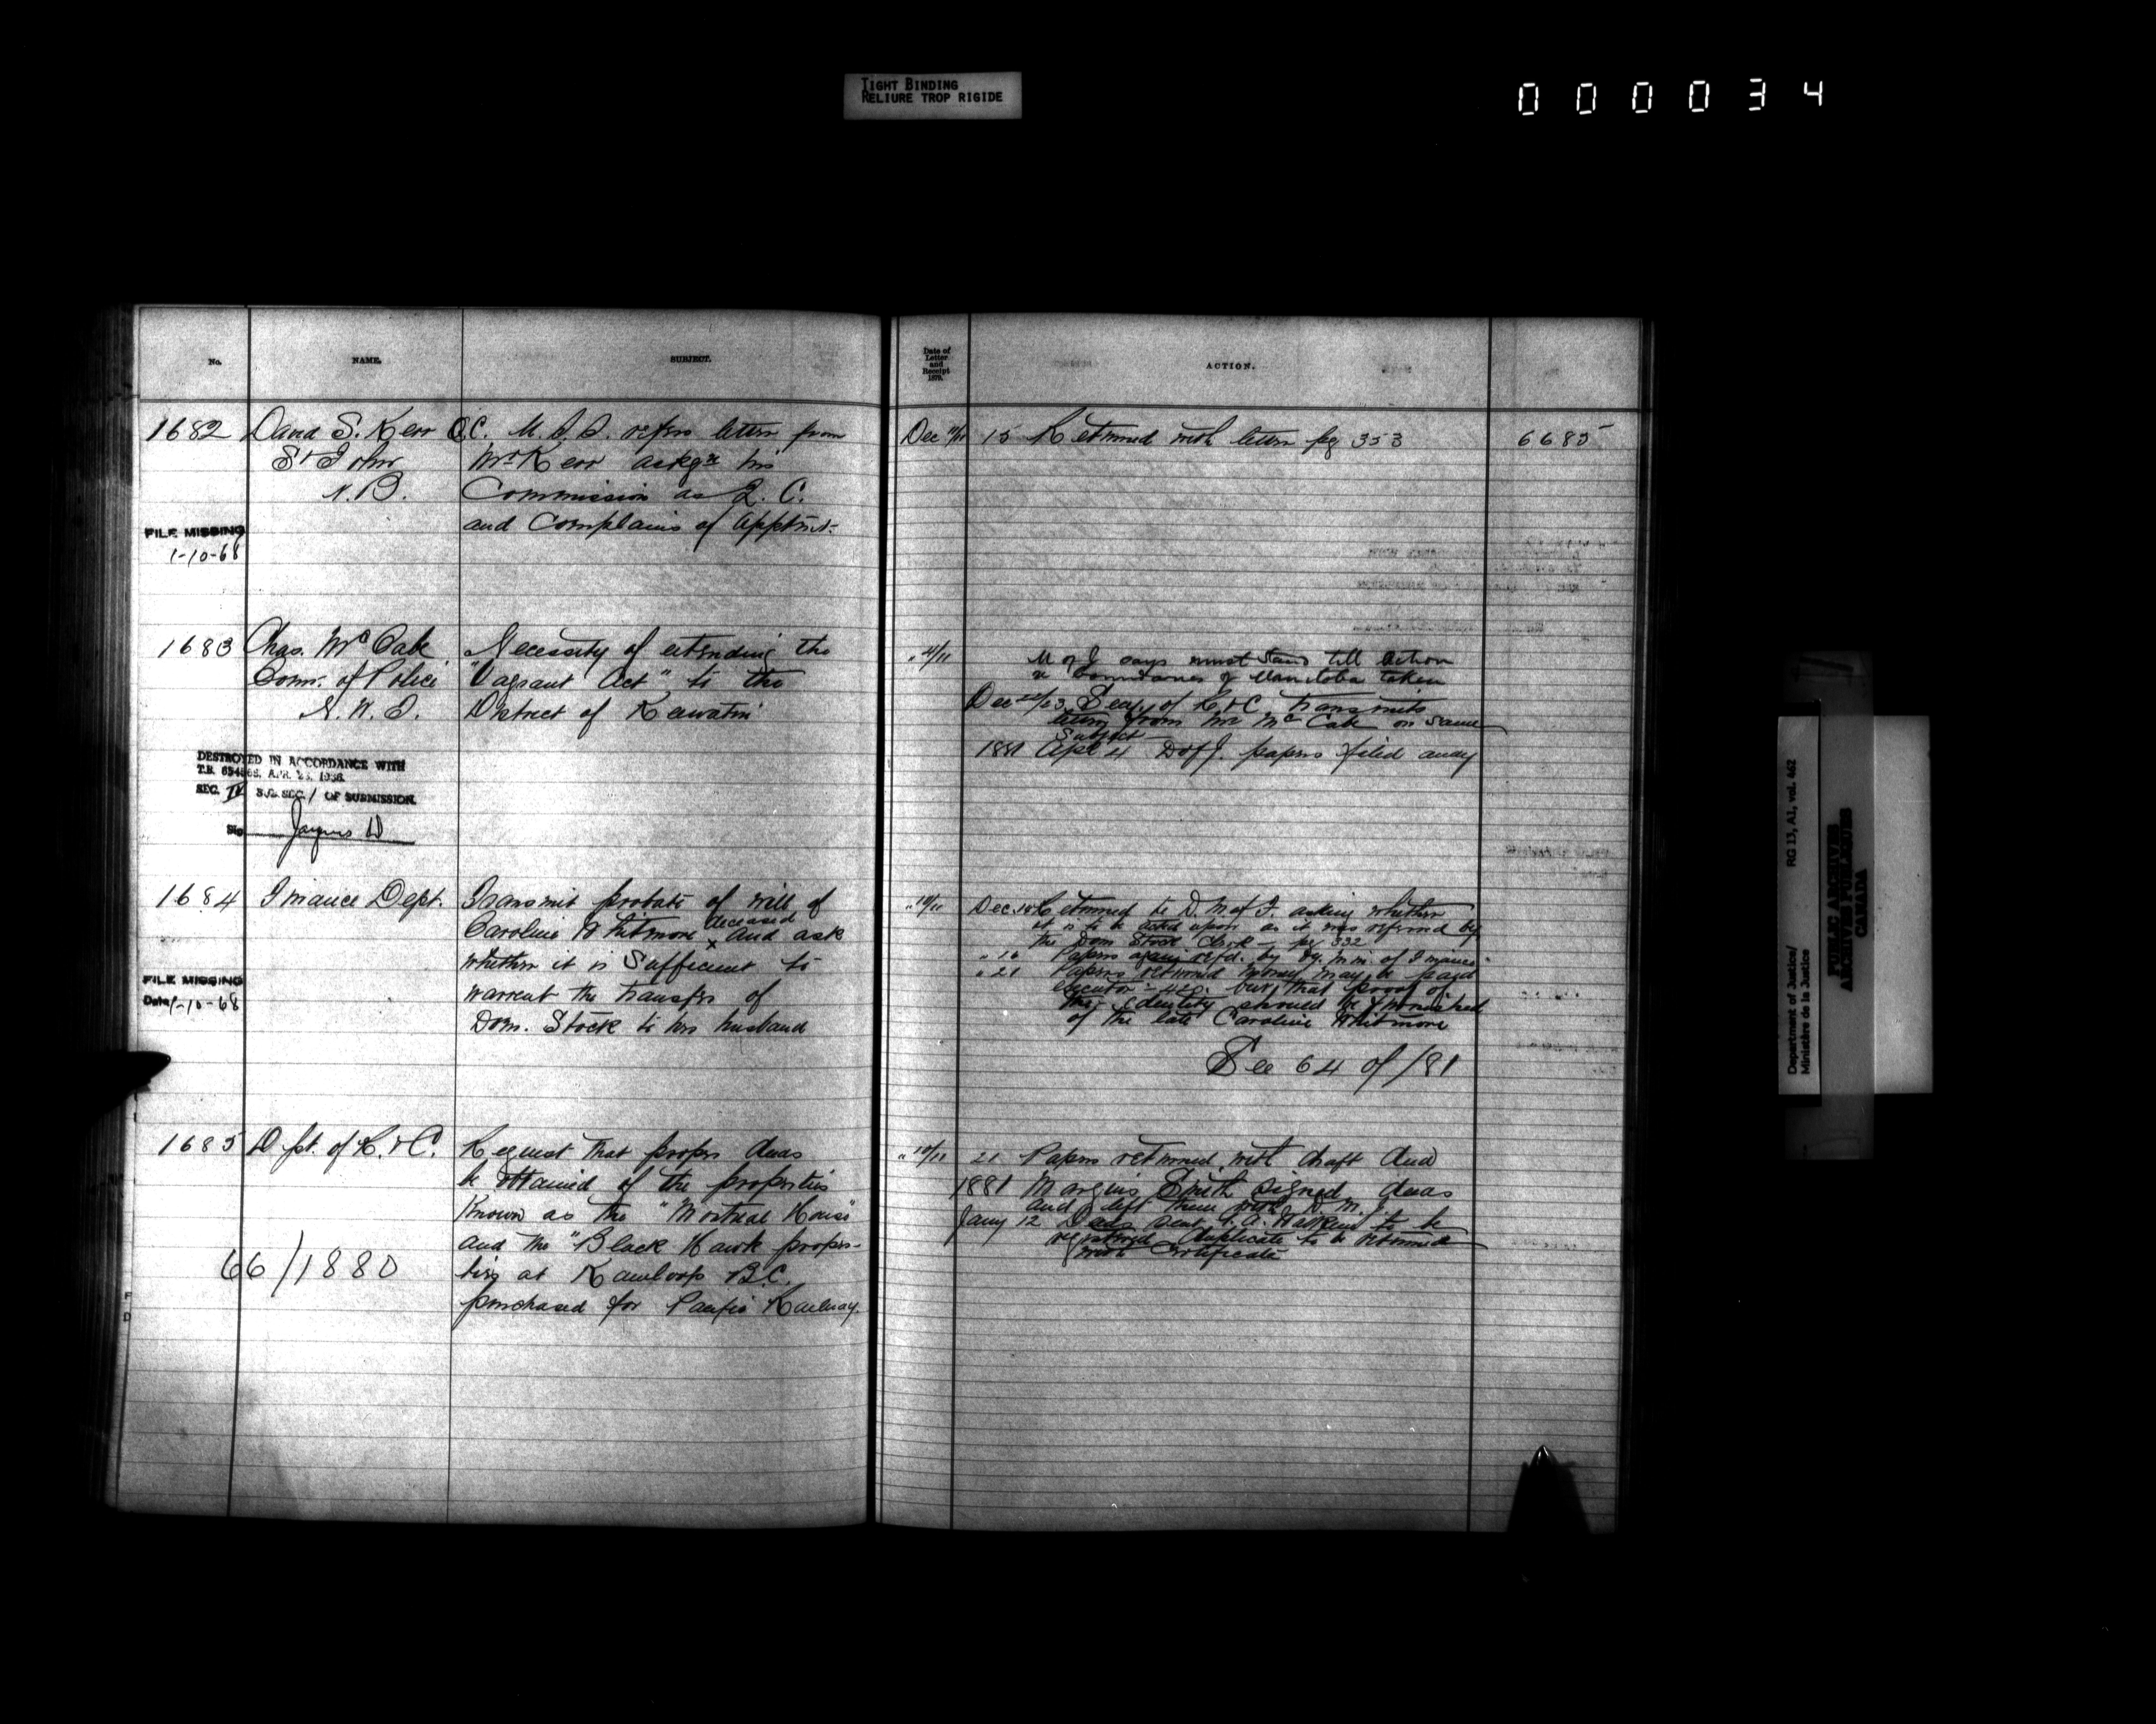 TIGHT BINDING
RELIURE TROP RIGIDE
000034
No.
NAME.
SUBJECT.
1682
David S. Kerr Q.C.
St John
N.B.
M.I.D. refers letter from
Mr Kerr askg his
Commission as Q.C.
and Complains of Apptmt.
FILE MISSING
1-10-68
1683
Chas. McCabe
Comr. of Police
N.W.T.
Necessity of extending the
"Vagrant Act" to the
District of Keewatin
DESTROYED IN ACCORDANCE WITH
T.B. APR. 1938.
SEC. IV SUB. SEC. 1 OF SUBMISSION.
1684
Finance Dept.
Transmit probate of will of
Caroline Whitmore deceased and ask
whether it is Sufficient to
warrent the transfer of
Dom. Stock to her husband
FILE MISSING
Date 1-10-68
1685
Dpt. of R. & C.
Request that proper deeds
be obtained of the properties
Known as the "Montreal House"
and the "Black Hawk proper-
ties at Kamloops B.C.
purchased for Pacific Railway.
66/1880
Date of
Letter
and
Receipt
ACTION.
Dec 11/11
15 Returned with letter pg 353
6685
" /11
M of J says must stand till action
re boundaries of Manitoba taken
Dec 22/23 Secy. of R & C. transmits
letter from Mr McCabe on same
subject
1881 Apl 4 D of J. papers filed away
" 10/11
Dec. Returned to D. M. of F. asking whether
it is to be acted upon as it was referred by
the Dom Stock Clerk - pg 332
" 16 Papers again refd. by Dy. Min. of Finance
" 21 Papers returned money may be paid
executor - 420. but that proof of
the identity should be furnished
of the late Caroline Whitmore
See 64 of /81
" 10/11
21 Papers returned with draft deed
1881 Smith signed deeds
and left them with D. M. J.
Jany 12 Deeds sent to be
registered Duplicate to be returned
with Certificate
Department of Justice/
Ministère de la Justice
RG 13, A1, vol. 462
PUBLIC ARCHIVES
ARCHIVES PUBLIQUES
CANADA